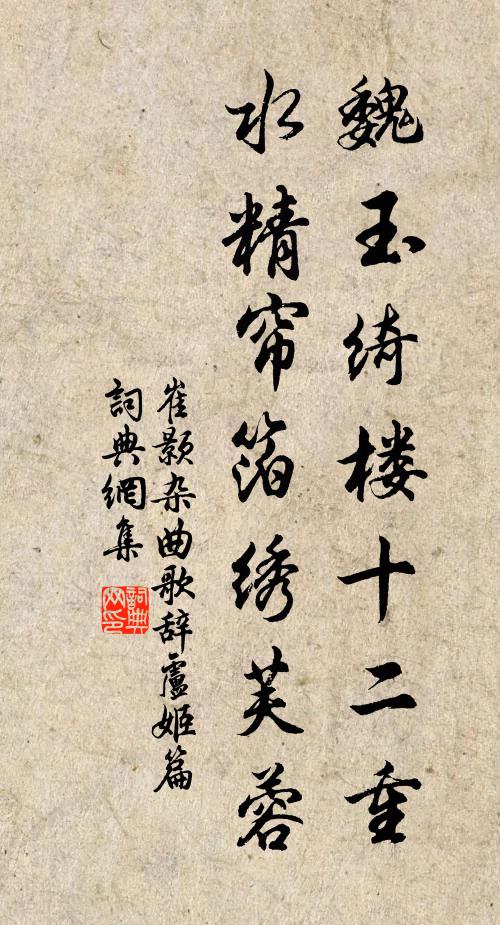 魏玉绮楼十二重
水精帘箔绣芙蓉
崔颢杂曲歌辞盧姬篇
詞典網集
詞典网印